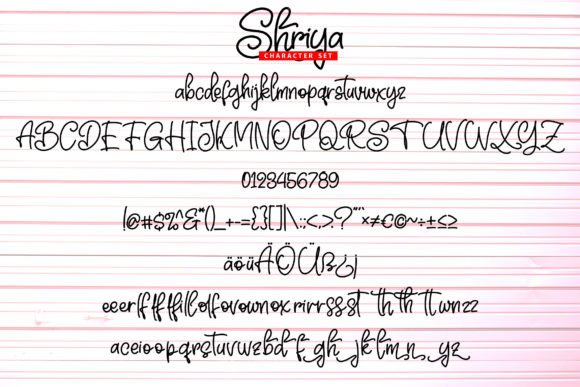 Shriya
CHARACTER SET
abcdefghijklmnopqrstuvwxyz
ABCDEFGHIJKLMNOPQRSTUVWXYZ
0123456789
!@#$%^&*()_+-={}[]|\:;<,>.?"'`×≠€©~÷±≤≥
äöüÄÖÜß¿¡
eeerffffffillolfovownoxrirrssst thth ttwnzz
aceioopqrstuvwzbd f gh jk lm n yz